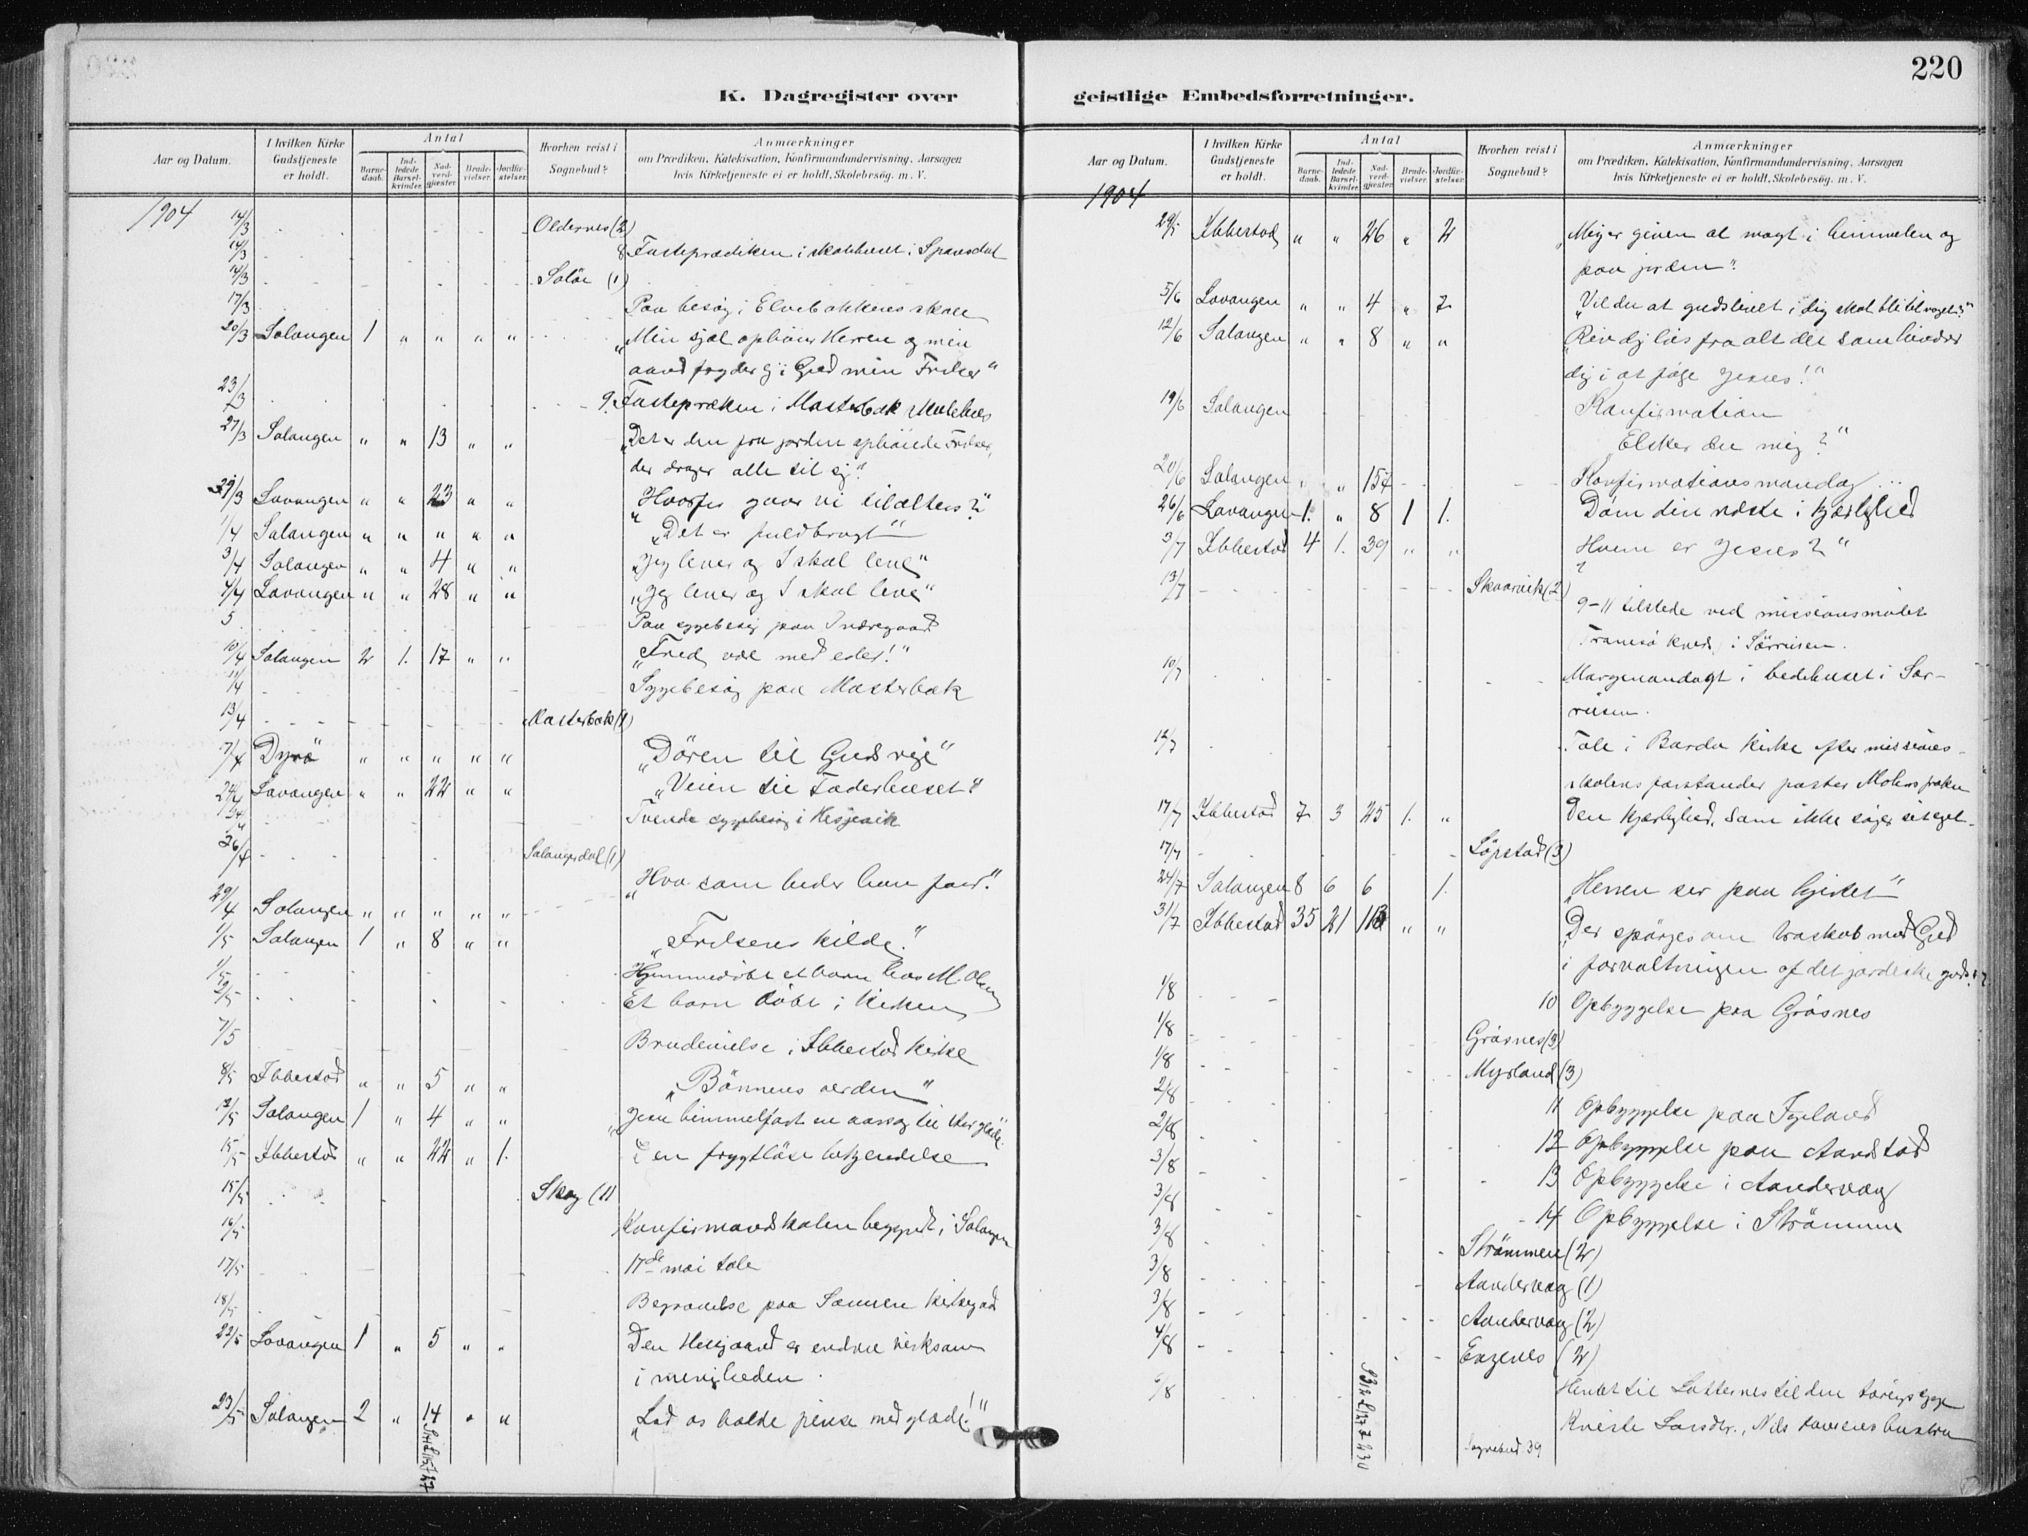 220
K. Dagregister over
Aar og Datum.
I hvilken Kirke Gudstjeneste er holdt.
Antal
Barnedaab.
Indledede Barselkvinder.
Nadverdgjester.
Brudevielser.
Jordfæstelser.
Hvorhen reist i Sognebud?
Anmærkninger
om Prædiken, Katekisation, Konfirmandundervisning, Aarsagen
hvis Kirketjeneste ei er holdt, Skolebesøg. m. V.
1904 14/3 Oldernes (2)
14/3 8 Fasteprædiken i skolehuset i Spansdal
14/3 Soløi (1)
17/3 Paa besøg i Elvebakkens skole
20/3 Salangen 1 " " " " „Min sjæl ophøier Herren og min
aand fryder sig i Gud min Frelser"
23/3 9. Fastepræken i Masterbak skolehus
27/3 Salangen " " 13 " " „Det er den fra jorden ophøiede Frelser,
der drager alle til sig."
/3 Lavangen " " 23 " " „Hvorfor gaar vi til alters?"
1/4 Salangen " " " " " „Det er fuldbragt"
3/4 Salangen " " 4 " " „Jeg lever og I skal leve"
4/4 Lavangen " " 28 " " „Jeg lever og I skal leve"
5 Paa sygebesøg paa Indregaard
10/4 Salangen 2 1. 17 " " „Fred være med eder!"
11/4 Sygebesøg paa Masterbak
13/4 Masterbak (1)
17/4 Dyrø " " " " " „Døren til Guds rige"
24/4 Lavangen " " 22 " " „Veien til Faderhuset"
Tvende sygebesøg i Hesjevik
26/4 Salangsdal (1)
„Hva som beder han faar."
29/4 Salangen " " " " "
1/5 Salangen 1 " 8 " " „Frelsens kilde."
1/5 Hjemmedøbt et barn hos M. Olsen
2/5 Et barn døbt i kirken
7/5 Brudevielse i Ibbestad kirke
8/5 Ibbestad " " 5 " " „Bønnens verden"
12/5 Salangen 1 " 4 " " „Jesu himmelfart en aarsag til stor glæde."
15/5 Ibbestad " " 22 " 1. Den frygtløse bekjendelse
15/5 Skog (1)
16/5 Konfirmandskolen begyndt i Salangen
17/5 17de mai tale
18/5 Begravelse paa kirkegaard
22/5 Lavangen 1 " 5 " " Den Helligaand er endnu virksom
i menigheden.
23/5 Salangen 2 " 14 " " „Lad os holde pinse med glæde!"
geistlige Embedsforretninger.
Aar og Datum.
I hvilken Kirke Gudstjeneste er holdt.
Antal
Barnedaab.
Indledede Barselkvinder.
Nadverdgjester.
Brudevielser.
Jordfæstelser.
Hvorhen reist i Sognebud?
Anmærkninger
om Prædiken, Katekisation, Konfirmandundervisning, Aarsagen
hvis Kirketjeneste ei er holdt, Skolebesøg. m. V.
1904
29/5 Ibbestad " " 26 " 2 „Mig er given al magt i himmelen og
paa jorden".
5/6 Lavangen " " 4 " 7 „Vil du at gudslivet i dig skal bli bevaget?"
12/6 Salangen " " 8 " " „Riv dig løs fra alt det som hindrer
dig i at følge Jesus!"
19/6 Salangen Konfirmation
„Elsker du mig?"
20/6 Salangen " " 157 Konfirmationsmandag
26/6 Lavangen 1. " 8 1 1. Døm din næste i kjærlighed
3/7 Ibbestad 4 1. 39 " " Hvem er Jesus?"
13/7 Skaarvik (2)
9-11 tilstede ved missionsmødet
Tromsø kreds i Sørreisen.
10/7 Morgenandagt i bedehuset i Sør-
reisen.
12/7 Tale i Bardu kirke efter missions-
skolens forstander pastor præken
17/7 Ibbestad 7 3 25 1. " Den kjærlighed, som ikke søger sit eget.
17/7 Løpstad (3)
24/7 Salangen 8 6 6 1. „Herren ser paa hjertet"
31/7 Ibbestad 35 21 " " Der spørges om troskab mod Gud
i forvaltningen af det jordiske gods.
1/8 10 Opbyggelse paa Grøsnes
1/8 Grøsnes (3)
1/8 Myrland (3)
2/8 11 Opbyggelse paa Fugland
2/8 12 Opbyggelse paa Aandstad
3/8 13 Opbyggelse i Aandervaag
3/8 14 Opbyggelse i Strømmen
3/8 Strømmen (2)
3/8 Aandervaag (1)
3/8 Aandervaag (2)
4/8 Engenes (2)
/8 Hentet til til den
Sognebud 39